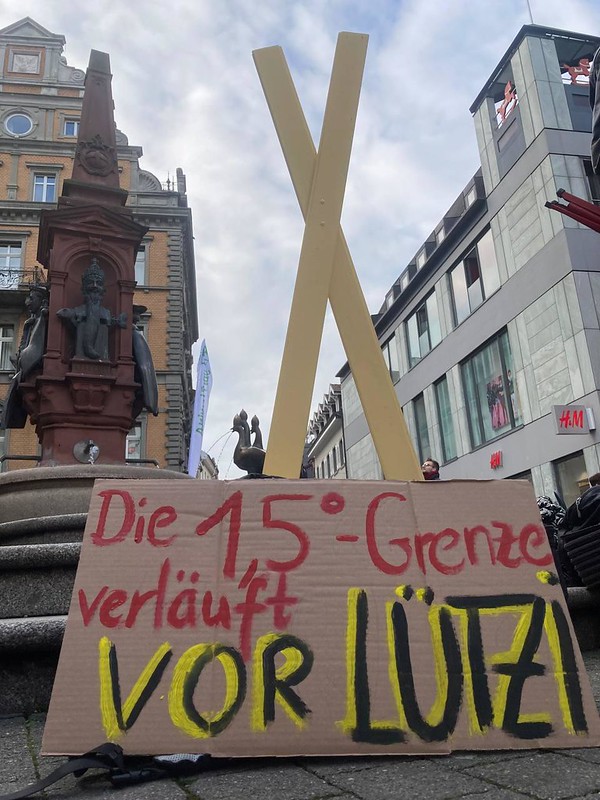 Die 1,5°-Grenze
verläuft
VOR LÜTZI
H&M
H&M